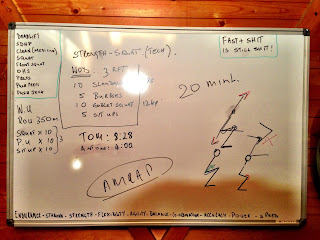 DEADLIFT
SDHP
CLEAN (MEDICINE)
SQUAT
FRONT SQUAT
OHS
PRESS
PUSH PRESS
PUSH JERK
W.U
ROW 350M
SQUAT X 10
P.U X 10 } 3
SIT UP X 10
STRENGTH - SQUAT. (TECH)
WOD: 3 RFT
10
5 BURPEES
10 GOBLET SQUAT 12kg
5 SIT UPS
TOM: 8:28
4:00
AMRAP
FAST & SHIT
IS STILL SHIT!
20 min.
ENDURANCE - STAMINA - STRENGTH - FLEXIBILITY - AGILITY - BALANCE - CO-ORDINATION - ACCURACY - POWER - SPEED